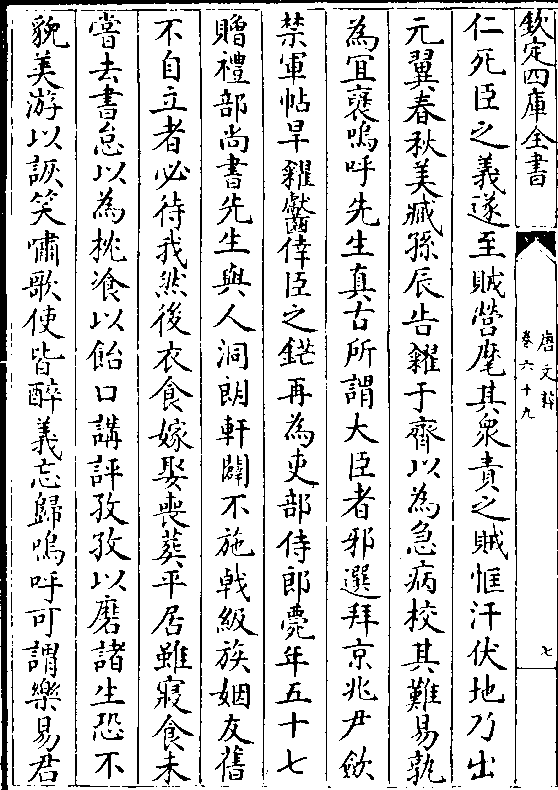 欽定四庫全書
唐文粹
卷六十九
七
仁死臣之義遂至賊營麾其衆責之賊恇汗伏地乃出
元翼春秋美臧孫辰告糴于齊以為急病校其難易孰
為宜襃嗚呼先生真古所謂大臣者邪選拜京兆尹斂
禁軍帖旱糴齾倖臣之鋩再為吏部侍郎薨年五十七
贈禮部尚書先生與人洞朗軒闢不施戟級族姻友舊
不自立者必待我然後衣食嫁娶喪葬平居雖寢食未
嘗去書怠以為枕飡以飴口講評孜孜以磨諸生恐不
貌美游以詼笑嘯歌使皆醉義忘歸嗚呼可謂樂易君